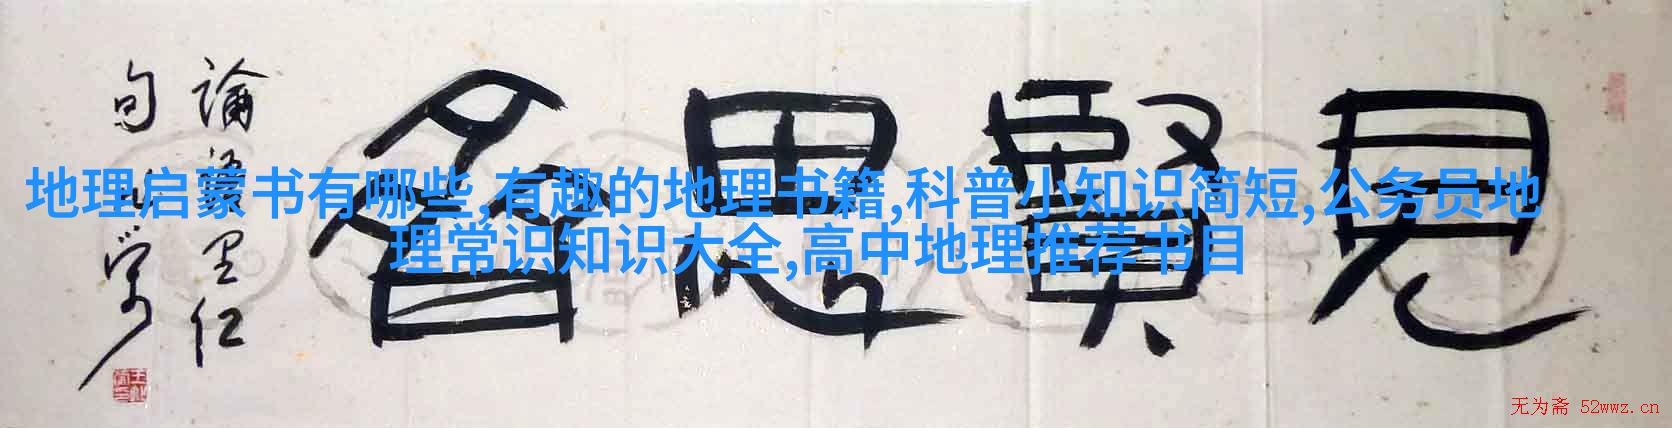 見賢思齊
論語里仁
句
地理启蒙书有哪些,有趣的地理书籍,科普小知识简短,公务员地
理常识知识大全,高中地理推荐书目
无为斋 52wwz.cn